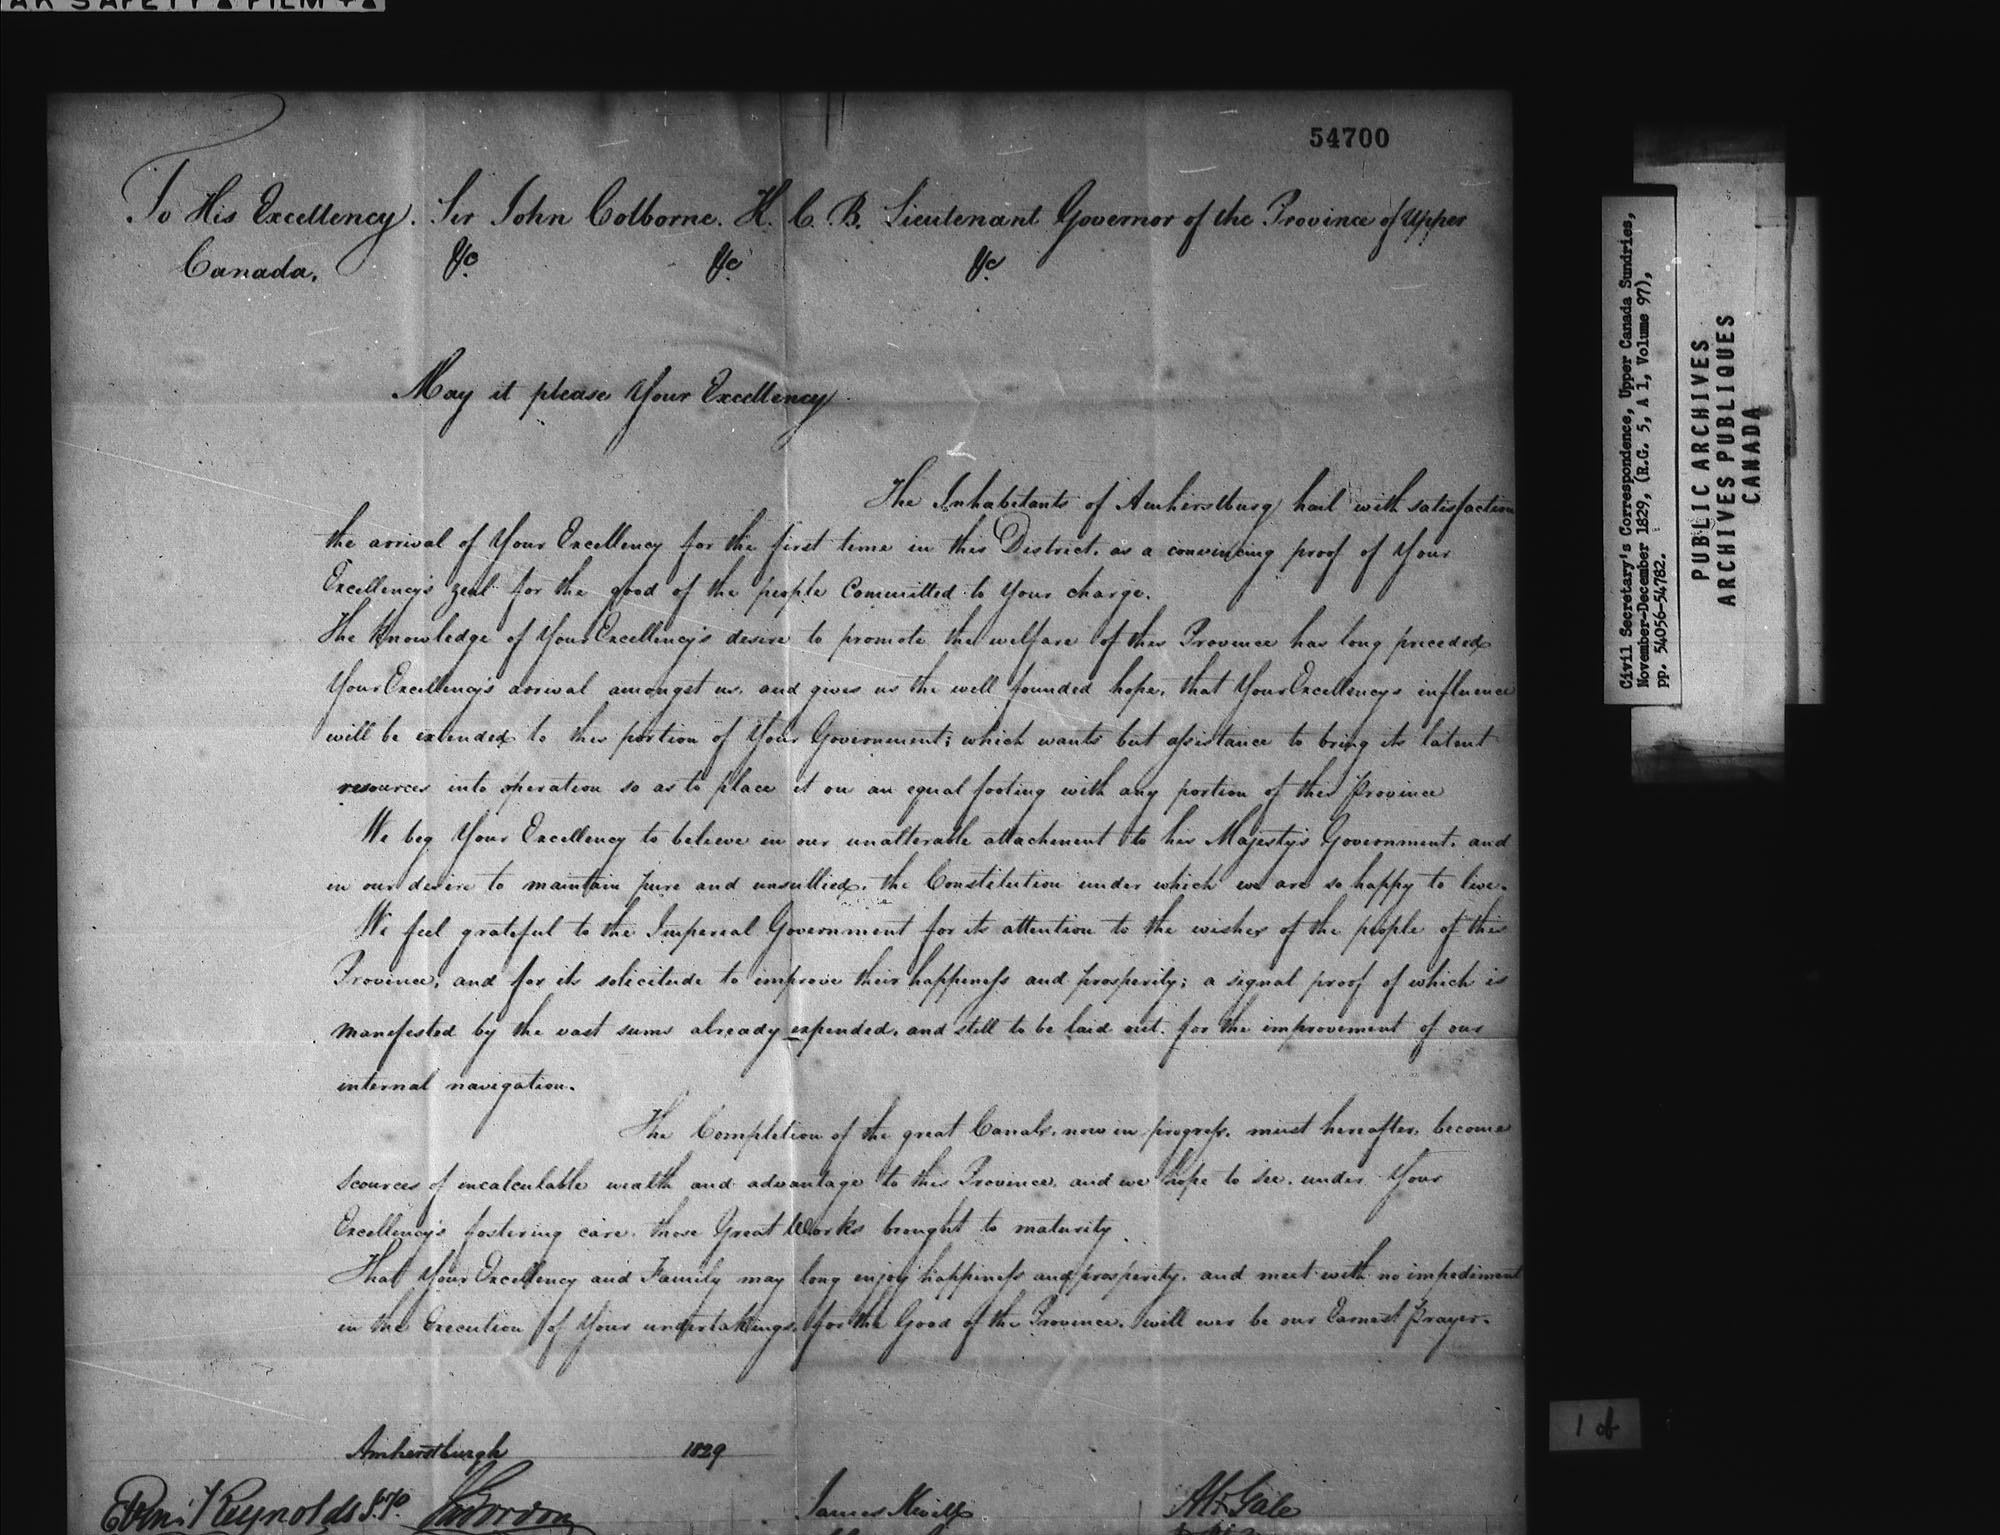 AK SAFETY FILM
54700
To His Excellency. Sir John Colborne. K. C. B. Lieutenant Governor of the Province of Upper
Canada. &c &c &c
May it please Your Excellency
The Inhabitants of Amherstburg hail with satisfaction
the arrival of Your Excellency for the first time in this District. as a convincing proof of Your
Excellency's zeal for the good of the people Committed to Your charge.
The Knowledge of Your Excellency's desire to promote the welfare of this Province has long preceded
Your Excellency's arrival amongst us. and gives us the well founded hope. that Your Excellency's influence
will be extended to this portion of Your Government; which wants but assistance to bring its latent
resources into operation so as to place it on an equal footing with any portion of this Province
We beg Your Excellency to believe in our unalterable attachment to his Majesty's Government. and
in our desire to maintain pure and unsullied. the Constitution under which we are so happy to live.
We feel grateful to the Imperial Government for its attention to the wishes of the people of this
Province, and for its solicitude to improve their happiness and prosperity; a signal proof of which is
manifested by the vast sums already expended. and still to be laid out. for the improvement of our
internal navigation.
The Completion of the great Canals. now in progress. must hereafter. become
scources of incalculable wealth and advantage to this Province. and we hope to see. under Your
Excellency's fostering care. those Great Works brought to maturity.
That Your Excellency and Family may long enjoy happiness and prosperity. and meet with no impediment
in the Execution of Your undertakings. for the Good of the Province. will ever be our Earnest Prayer.
Amherstburgh 1829
Reynolds J.P. Gordon James Gale
Civil Secretary's Correspondence, Upper Canada Sundries,
November-December 1829, (R.G. 5, A 1, Volume 97),
pp. 54056-54782.
PUBLIC ARCHIVES
ARCHIVES PUBLIQUES
CANADA
1 of